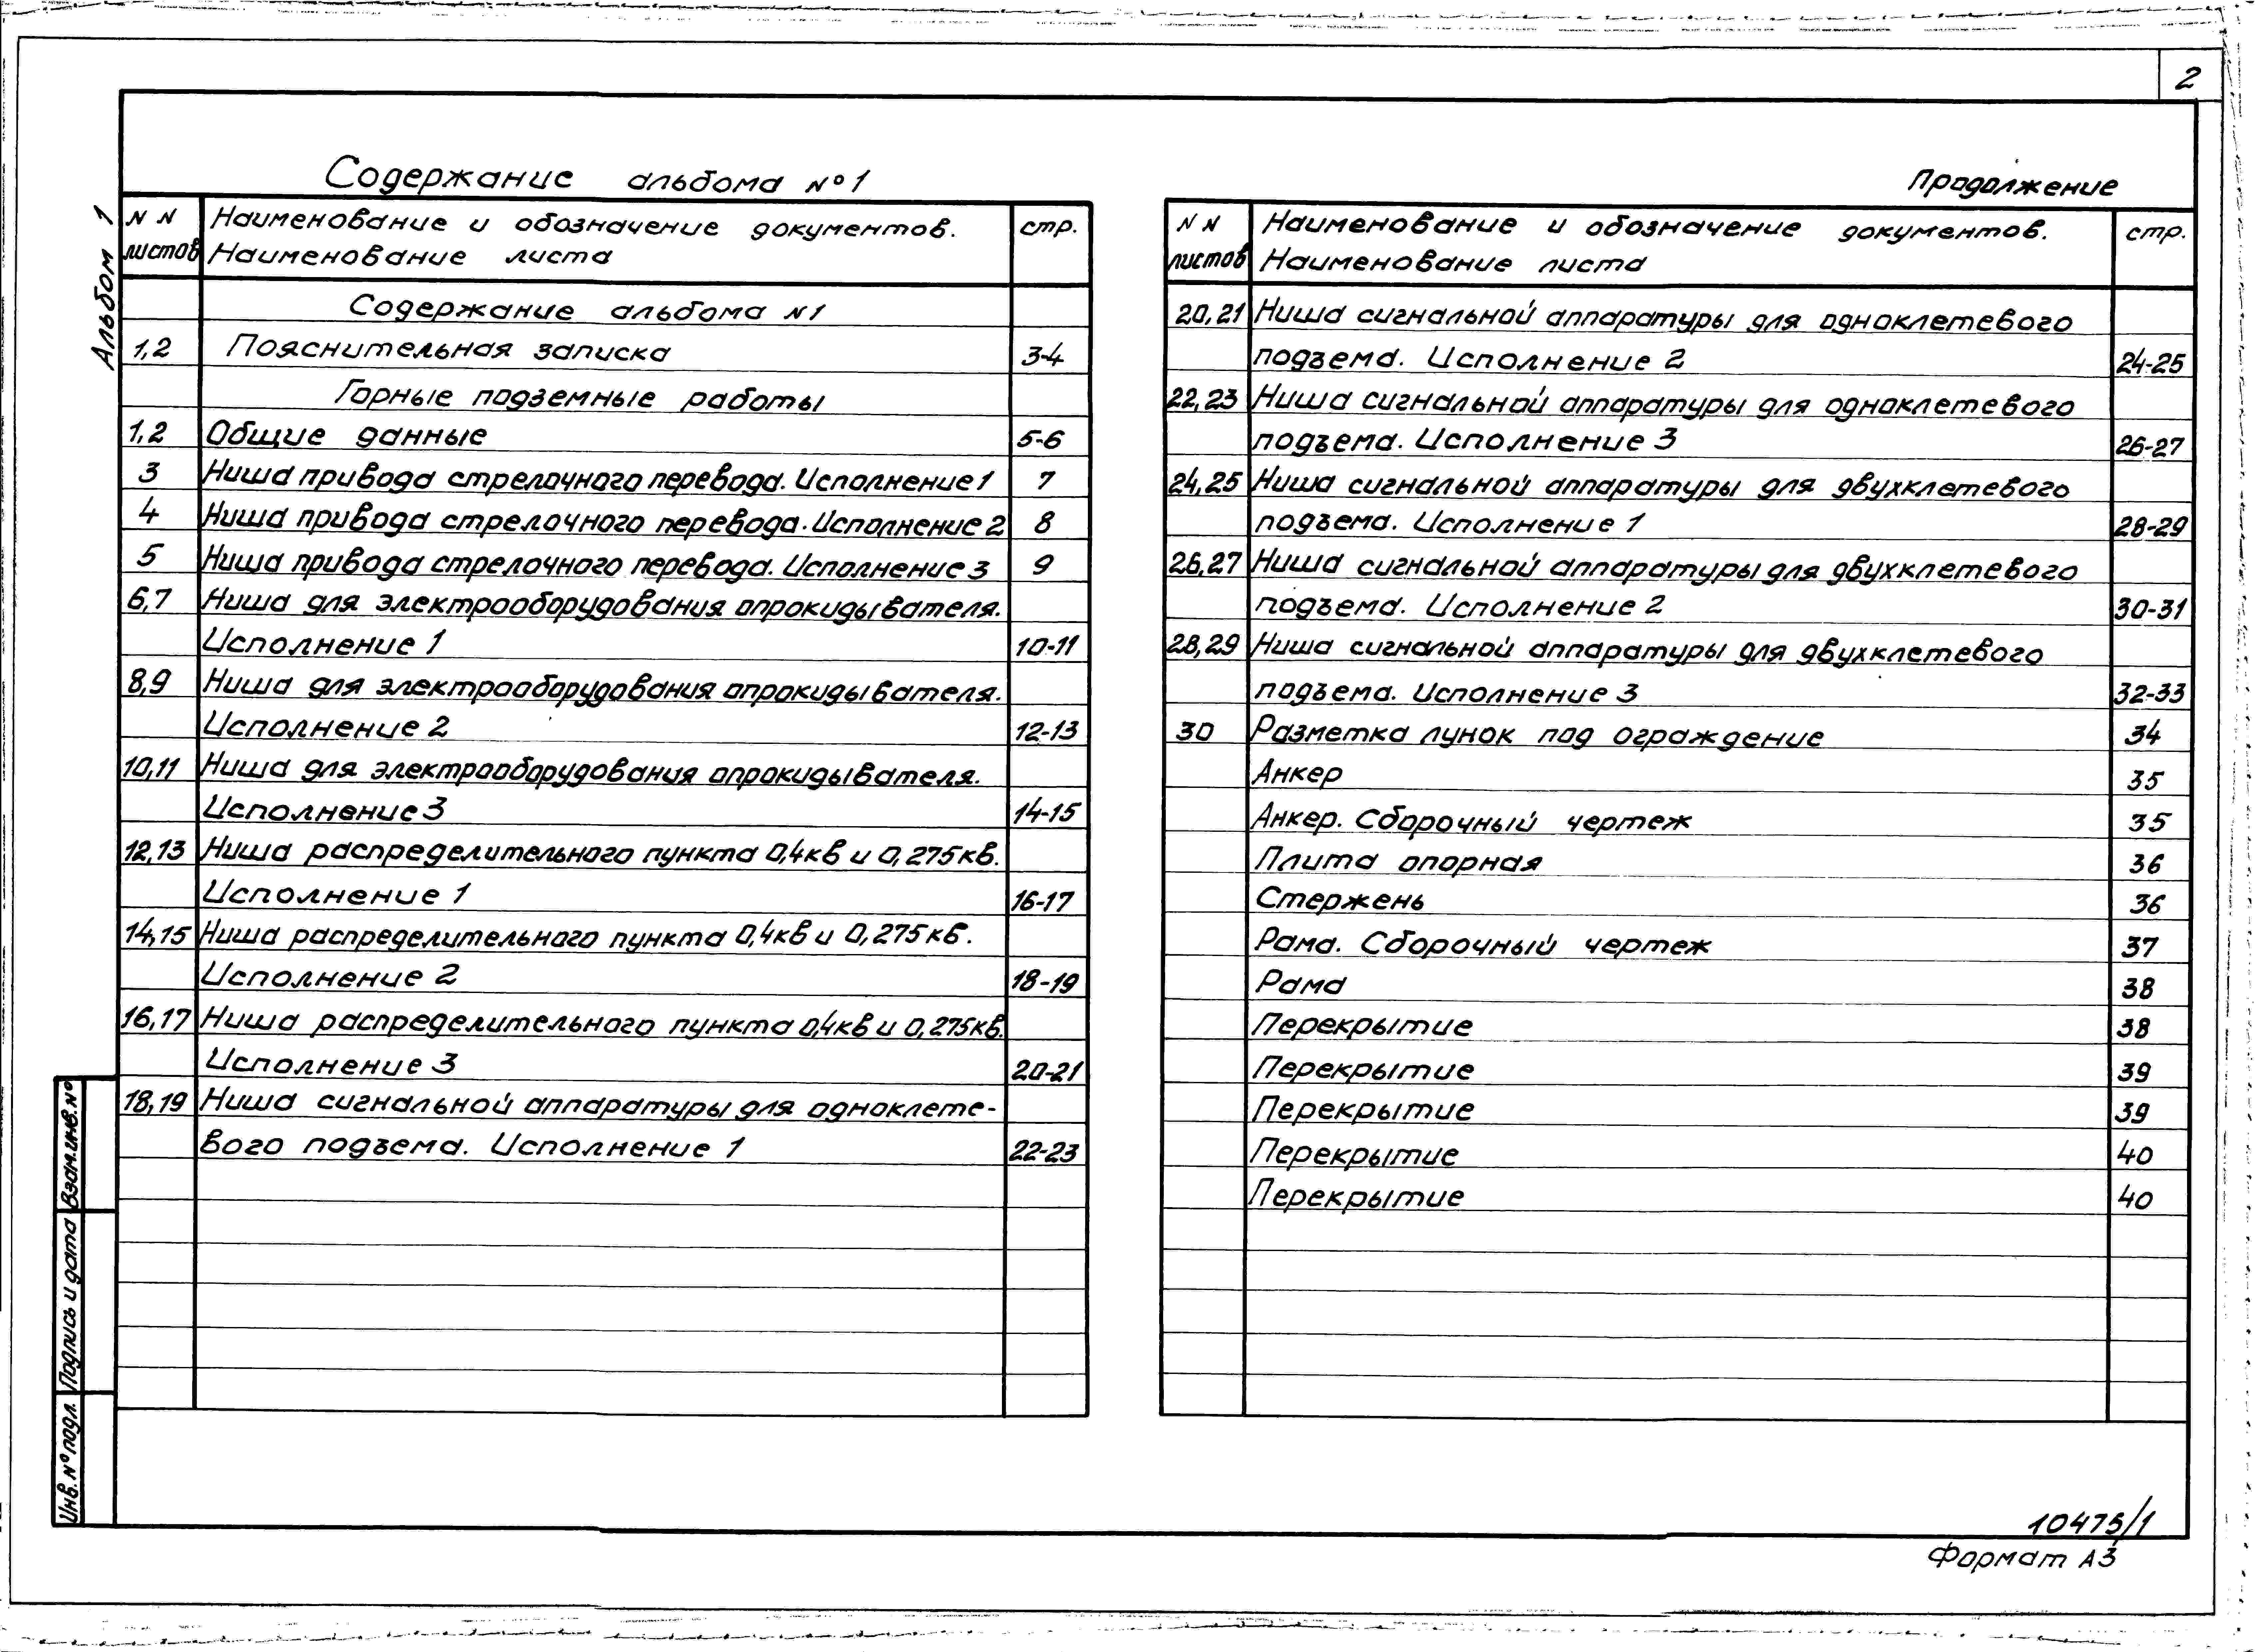 2
Содержание альбома №1
Альбом 1
N N листов
Наименование и обозначение документов. Наименование листа
стр.
Содержание альбома N1
1,2 Пояснительная записка 3-4
Горные подземные работы
1,2 Общие данные 5-6
3 Ниша привода стрелочного перевода. Исполнение 1 7
4 Ниша привода стрелочного перевода. Исполнение 2 8
5 Ниша привода стрелочного перевода. Исполнение 3 9
6,7 Ниша для электрооборудования опрокидывателя.
Исполнение 1 10-11
8,9 Ниша для электрооборудования опрокидывателя.
Исполнение 2 12-13
10,11 Ниша для электрооборудования опрокидывателя.
Исполнение 3 14-15
12,13 Ниша распределительного пункта 0,4кв и 0,275кв.
Исполнение 1 16-17
14,15 Ниша распределительного пункта 0,4кв и 0,275кв.
Исполнение 2 18-19
16,17 Ниша распределительного пункта 0,4кв и 0,275кв.
Исполнение 3 20-21
18,19 Ниша сигнальной аппаратуры для одноклете-
вого подъема. Исполнение 1 22-23
Продолжение
N N листов
Наименование и обозначение документов. Наименование листа
стр.
20,21 Ниша сигнальной аппаратуры для одноклетевого
подъема. Исполнение 2 24-25
22,23 Ниша сигнальной аппаратуры для одноклетевого
подъема. Исполнение 3 26-27
24,25 Ниша сигнальной аппаратуры для двухклетевого
подъема. Исполнение 1 28-29
26,27 Ниша сигнальной аппаратуры для двухклетевого
подъема. Исполнение 2 30-31
28,29 Ниша сигнальной аппаратуры для двухклетевого
подъема. Исполнение 3 32-33
30 Разметка лунок под ограждение 34
Анкер 35
Анкер. Сборочный чертеж 35
Плита опорная 36
Стержень 36
Рама. Сборочный чертеж 37
Рама 38
Перекрытие 38
Перекрытие 39
Перекрытие 39
Перекрытие 40
Перекрытие 40
Взам.инв.№
Подпись и дата
Инв.№ подл.
10475/1
Формат А3